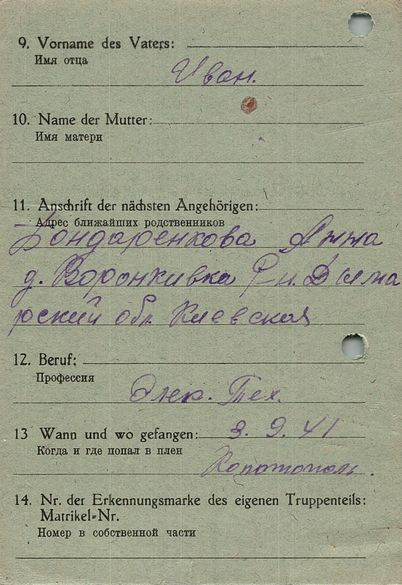 9. Vorname des Vaters:
Имя отца
Иван.
10. Name der Mutter:
Имя матери
11. Anschrift der nächsten Angehörigen:
Адрес ближайших родственников
Бондаренкова Анна
д. Воронкивка Р-н. Дыма
рский обл Киевская
12. Beruf:
Профессия
Элек. Тех.
13 Wann und wo gefangen: 3. 9. 41
Когда и где попал в плен
14. Nr. der Erkennungsmarke des eigenen Truppenteils:
Matrikel-Nr.
Номер в собственной части